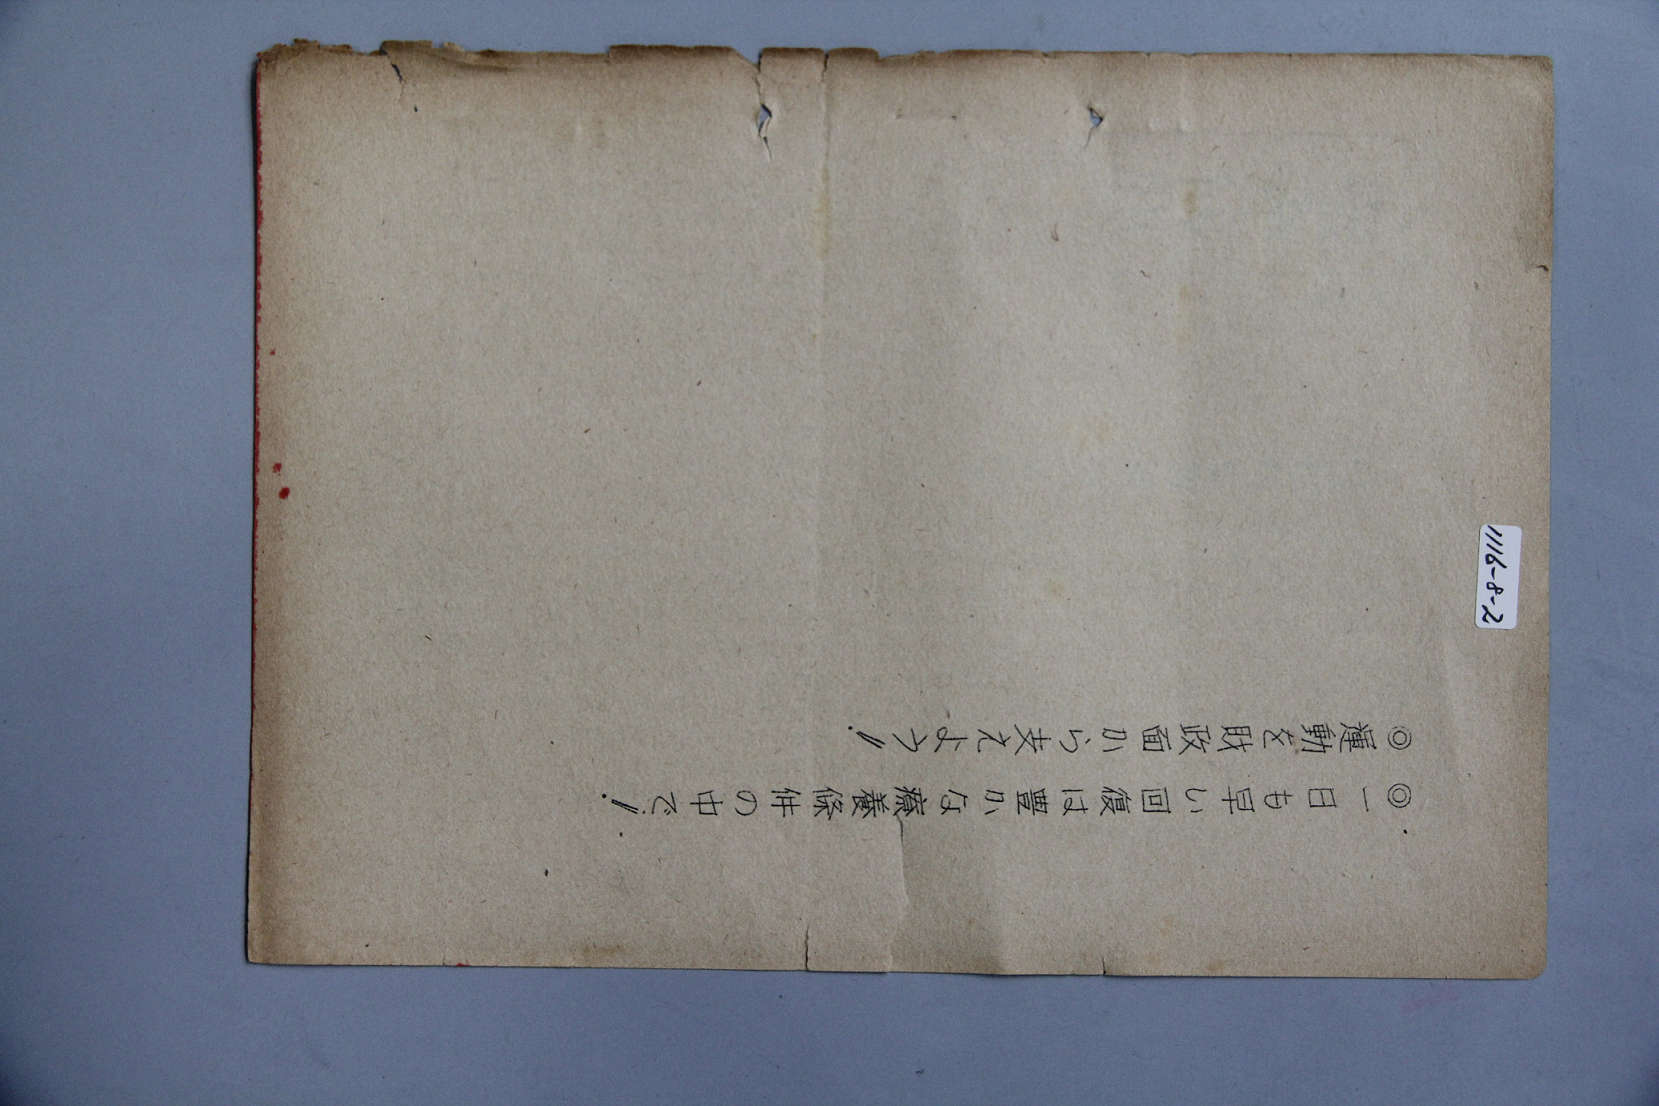 1116-8-2
◎一日も早い回復は豊かな療養條件の中で！
◎運動を財政面から支えよう！